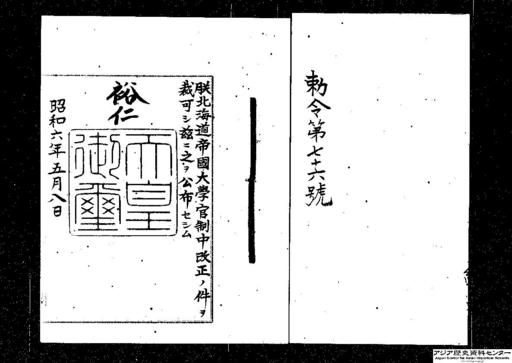 勅令第七十六號
朕北海道帝國大學官制中改正ノ件ヲ
裁可シ茲ニ之ヲ公布セシム
裕仁
天皇
御璽
昭和六年五月八日
アジア歴史資料センター
Japan Center for Asian Historical Records